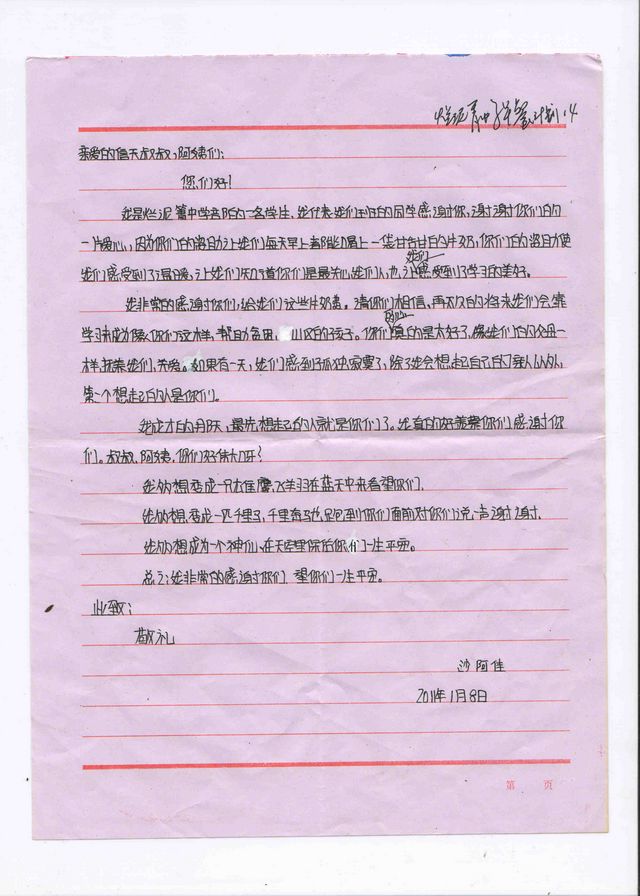 烂泥箐中学 早餐计划.4
亲爱的信天叔叔,阿姨们:
您们好!
我是烂泥箐中学者阳的一名学生,我代表我们班的同学感谢你,谢谢你们的
一片爱心,因为你们的资助让我们每天早上都能喝上一袋甘甘甘的牛奶,你们的资助使
我们感受到了温暖,让我们知道你们是最关心我们人,也让我们感受到了学习的美好。
我非常的感谢你们,给我们这些牛奶费。请你们相信,再不久的将来我们会靠
学习来成才像你们这样,帮助危困,山区的孩子。你们真的是太好了,像我们的父母一
样抚养我们,关爱我们。如果有一天,我们感到孤独寂寞了,除了我会想起自己的家人以外,
第一个想起的人是你们。
我成才的明天,最先想起的人就是你们了。我真的好羡慕你们感谢你
们。叔叔,阿姨,你们好伟大呀?
我幻想变成一只雄鹰,飞翔在蓝天中来看望你们,
我幻想变成一匹千里马,千里奔驰回到你们面前对你们说一声谢谢,
我幻想成为一个神仙,在天空里保佑你们一生平安。
总之:我非常的感谢你们,望你们一生平安。
此致:
敬礼
沙阿佳
2011年1月8日
第 页